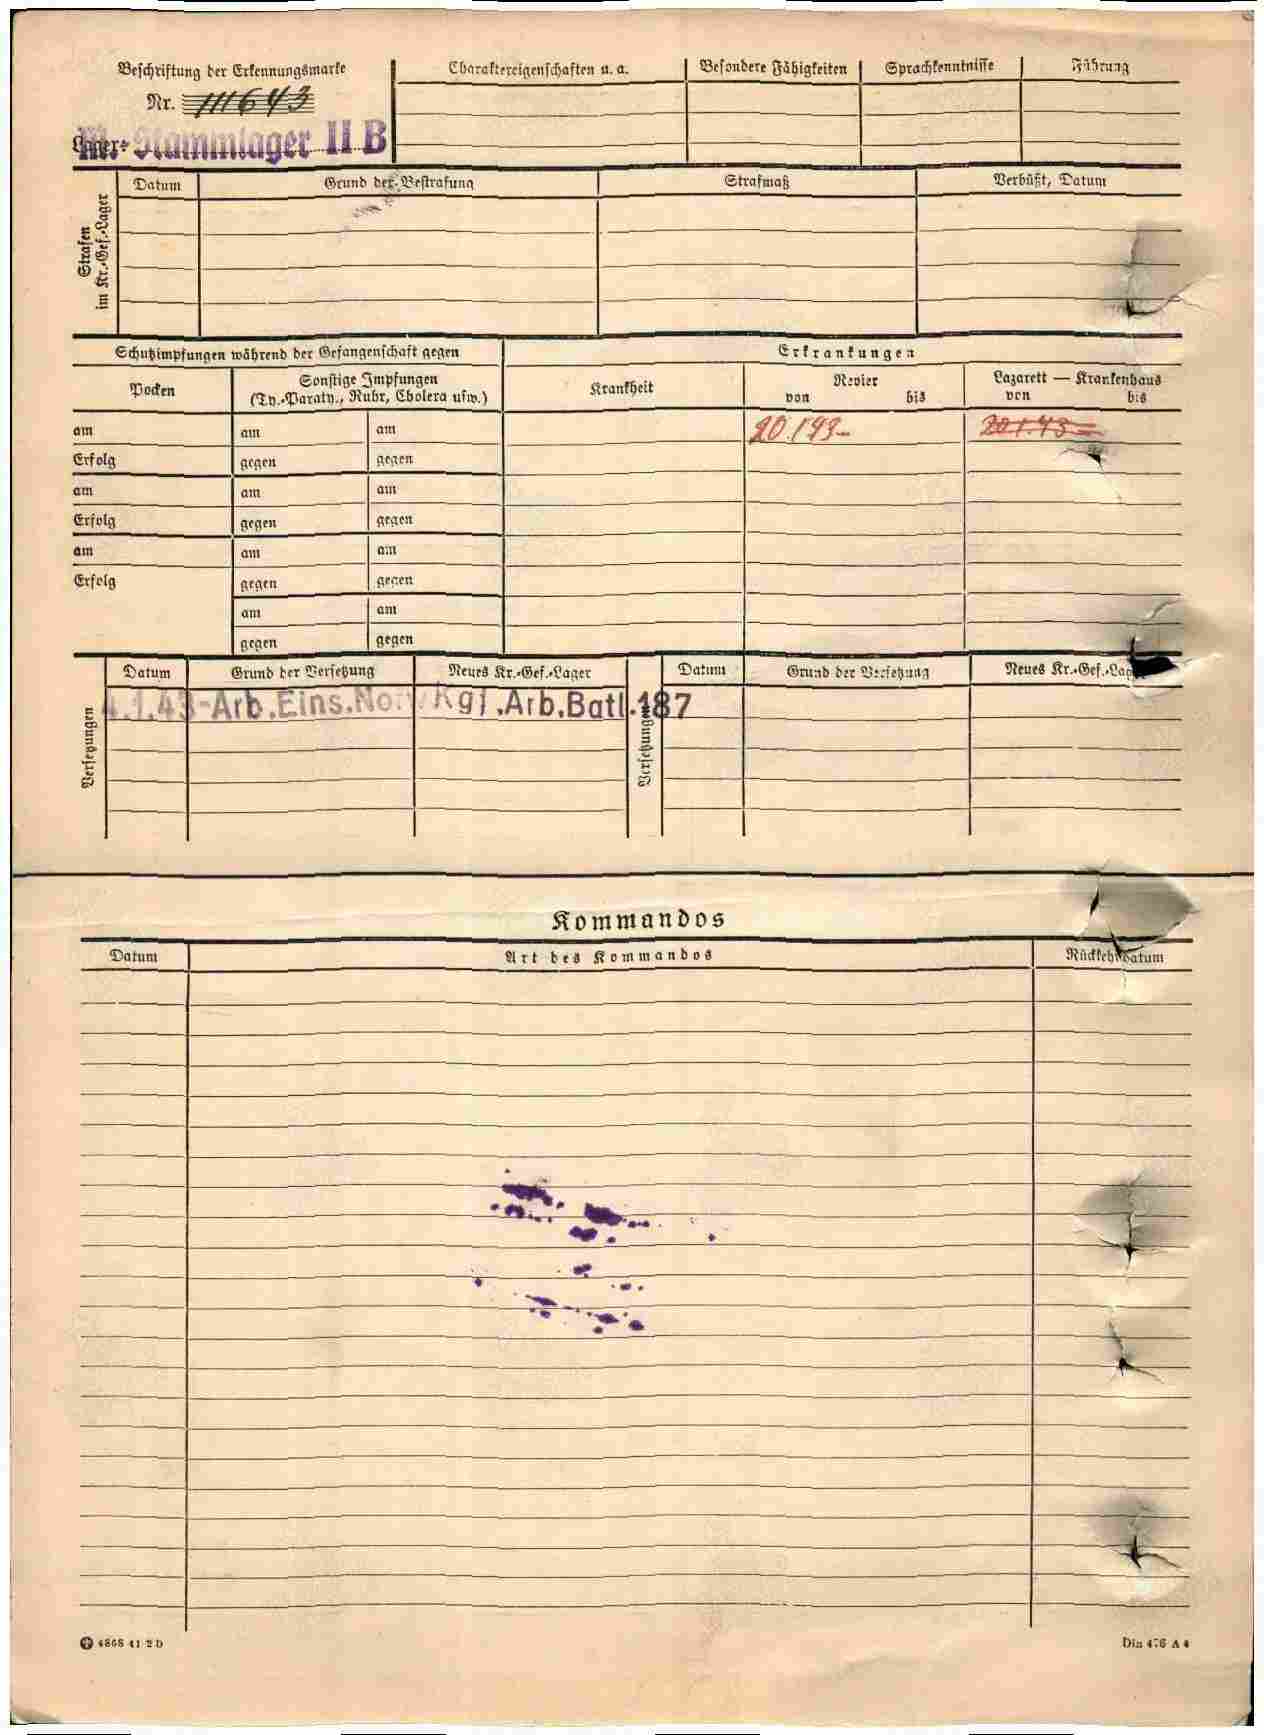 Beschriftung der Erkennungsmarke
Nr. 111643
Lager: M.-Stammlager II B
Charaktereigenschaften u. a.
Besondere Fähigkeiten
Sprachkenntnisse
Führung
Strafen im Kr.-Gef.-Lager
Datum
Grund der Bestrafung
Strafmaß
Verbüßt, Datum
Schutzimpfungen während der Gefangenschaft gegen
Erkrankungen
Pocken
Sonstige Impfungen
(Ty.-Paraty., Ruhr, Cholera usw.)
Krankheit
Revier
von bis
Lazarett — Krankenhaus
von bis
am am am 20.1.43- 20.1.43-
Erfolg gegen gegen
am am am
Erfolg gegen gegen
am am am
Erfolg gegen gegen
am am
gegen gegen
Versetzungen
Datum
Grund der Versetzung
Neues Kr.-Gef.-Lager
Versetzungen
Datum
Grund der Versetzung
Neues Kr.-Gef.-Lager
4.1.43-Arb.Eins.Notw Kgf.Arb.Batl.187
Kommandos
Datum
Art des Kommandos
Rückkehrdatum
4868 41 2 D
Din 476 A 4